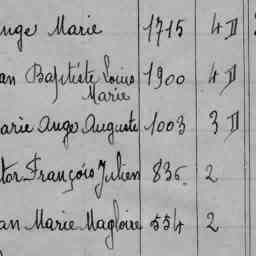 ange Marie 1715 4 D
an Baptiste Louis 1900 4 D
Marie
arie Ange Auguste 1003 3 D
tor François Julien 836. 2
an Marie Magloire 554 2